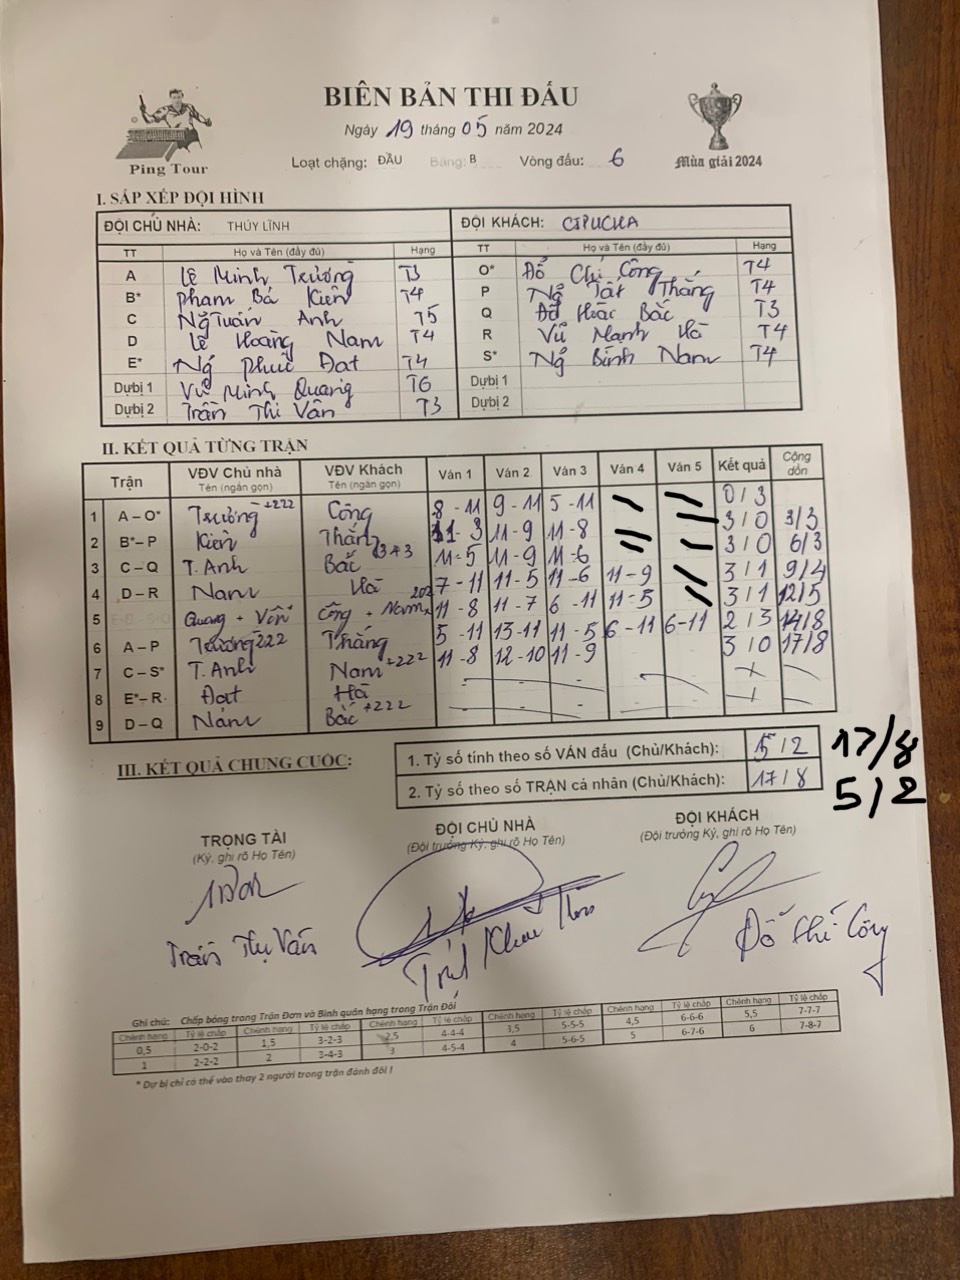 BIÊN BẢN THI ĐẤU
Ngày 19 tháng 05 năm 2024
Ping Tour
Loạt chặng: ĐẦU Bảng: B Vòng đấu: 6
Mùa giải 2024
I. SẮP XẾP ĐỘI HÌNH
ĐỘI CHỦ NHÀ: THÚY LĨNH ĐỘI KHÁCH: CIPUCHA
TT Họ và Tên (đầy đủ) Hạng TT Họ và Tên (đầy đủ) Hạng
A Lê Minh Trường T3 O* Đỗ Chí Công T4
B* Phạm Bá Kiên T4 P Ng Tất Thắng T4
C Ng Tuấn Anh T5 Q Đỗ Bắc T3
D Lê Hoàng Nam T4 R Vũ Mạnh Hà T4
E* Ng Phúc Đạt T4 S* Ng Bình Nam T4
Dự bị 1 Vũ Minh Quang T6 Dự bị 1
Dự bị 2 Trần Thị Vân T3 Dự bị 2
II. KẾT QUẢ TỪNG TRẬN
Trận VĐV Chủ nhà VĐV Khách Ván 1 Ván 2 Ván 3 Ván 4 Ván 5 Kết quả Cộng dồn
Tên (ngắn gọn) Tên (ngắn gọn)
1 A – O* Trường +222 Công 8 - 11 9 - 11 5 - 11 0/3
2 B* – P Kiên Thắng 11 - 3 11 - 9 11 - 8 3/0 3/3
3 C – Q T. Anh Bắc 343 11 - 5 11 - 9 11 - 6 3/0 6/3
4 D – R Nam Hà 7 - 11 11 - 5 11 - 6 11 - 9 3/1 9/4
5 Quang + Vân Công + Nam 202 11 - 8 11 - 7 6 - 11 11 - 5 3/1 12/5
6 A – P Trường 222 Thắng 5 - 11 13 - 11 11 - 5 6 - 11 6 - 11 2/3 14/8
7 C – S* T. Anh Nam +222 11 - 8 12 - 10 11 - 9 3/0 17/8
8 E* – R Đạt Hà
9 D – Q Nam Bắc +222
III. KẾT QUẢ CHUNG CUỘC:
1. Tỷ số tính theo số VÁN đấu (Chủ/Khách): 5/2 17/8
2. Tỷ số theo số TRẬN cá nhân (Chủ/Khách): 17/8 5/2
TRỌNG TÀI ĐỘI CHỦ NHÀ ĐỘI KHÁCH
(Ký, ghi rõ Họ Tên) (Đội trưởng Ký, ghi rõ Họ Tên) (Đội trưởng Ký, ghi rõ Họ Tên)
Trần Thị Vân Đỗ Chí Công
Ghi chú: Chấp bóng trong Trận Đơn và Bình quân hạng trong Trận Đôi
Chênh hạng Tỷ lệ chấp Chênh hạng Tỷ lệ chấp Chênh hạng Tỷ lệ chấp Chênh hạng Tỷ lệ chấp Chênh hạng Tỷ lệ chấp Chênh hạng Tỷ lệ chấp
0,5 2-0-2 1,5 3-2-3 2,5 4-4-4 3,5 5-5-5 4,5 6-6-6 5,5 7-7-7
1 2-2-2 2 3-4-3 3 4-5-4 4 5-6-5 5 6-7-6 6 7-8-7
* Dự bị chỉ có thể vào thay 2 người trong trận đánh đôi !